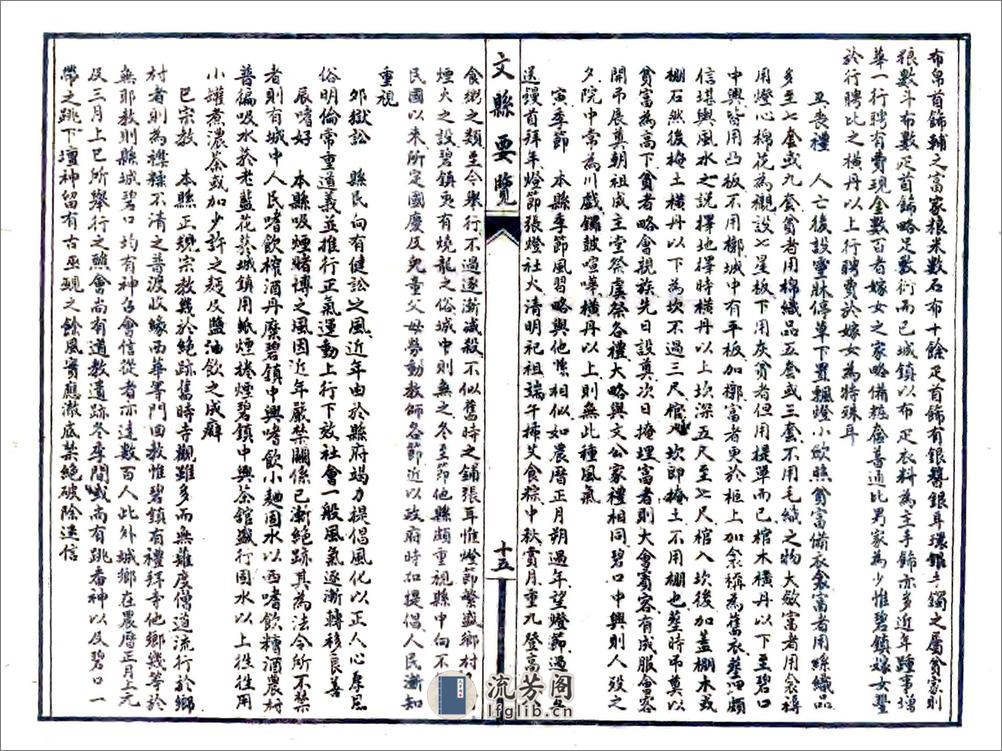 布帛首飾輔之富家粮米數石布十餘疋首飾有銀簪銀耳環銀手鐲之屬貧家則
粮數斗布數疋首飾略足敷衍而已城鎮以布疋衣料為主手飾亦多近年踵事增
華一行聘有費現金數百者嫁女之家略備粧奩普通比男家為少惟碧鎮嫁女豐
於行聘比之橫丹以上行聘費於嫁女為特殊耳
丑喪禮 人亡後設靈牀停單下置飄燈小飲照貧富備衣衾富者用絲織品
多至七套或九套貧者用棉織品五套或三套不用毛織之物大斂富者用衾褥
用燈心棉花為襯設七星板下用灰貧者但用檖單而已棺木橫丹以下至碧口
中興皆用凸板不用槨城中有平板加槨富者更於柩上加衾稱為舊衣葬地頗
信堪輿風水之說擇地擇時橫丹以上坎深五尺至七尺棺入坎後加蓋棚木或
棚石然後掩土橫丹以下為坎不過三尺棺入坎即掩土不用棚也葬時弔奠以
貧富為高下貧者略會親族先日設奠次日掩埋富者則大會賓客有成服會客
開弔展奠朝祖成主堂祭虞祭各禮大略與文公家禮相同碧口中興則人歿之
夕院中常為川戲鑼鼓喧嘩橫丹以上則無此種風氣
寅季節 本縣季節風習略與他縣相似如農曆正月朔過年望燈節過年
送饅首拜年燈節張燈社火清明祀祖端午插艾食粽中秋賞月重九登高
文縣要覽
十五
食粥之類至今舉行不過逐漸減殺不似舊時之鋪張耳惟燈節繁盛鄉村
煙火之設碧鎮更有燒龍之俗城中則無之冬至節他縣頗重視縣中向不
民國以來所定國慶及兒童父母勞動教師各節近以政府時加提倡人民漸知
重視
卯獄訟 縣民向有健訟之風近年由於縣府竭力提倡風化以正人心厚風
俗明倫常重道義並推行正氣運動上行下效社會一般風氣逐漸轉移良善
辰嗜好 本縣吸煙賭博之風因近年嚴禁關係已漸絕跡其為法令所不禁
者則有城中人民嗜飲榨酒丹糜碧鎮中興嗜飲小麯固水以西嗜飲糟酒農村
普徧吸水菸老藍花葉城鎮用紙煙捲煙碧鎮中興茶館盛行固水以上往往用
小罐煮濃茶或加少許之麵及鹽油飲之成癖
巳宗教 本縣正規宗教幾於絕跡舊時寺觀雖多而無雖度僧道流行於鄉
村者則為襍糅不清之普渡收緣西華等門回教惟碧鎮有禮拜寺他鄉幾等於
無耶教則縣城碧口均有神召會信從者亦達數百人此外城鄉在農曆正月上元
及三月上巳所舉行之醮會尚有道教遺跡冬季間或尚有跳番神以及碧口一
帶之跳下壇神留有古巫覡之餘風實應澈底禁絕破除迷信
流芳閣
lfglib.cn